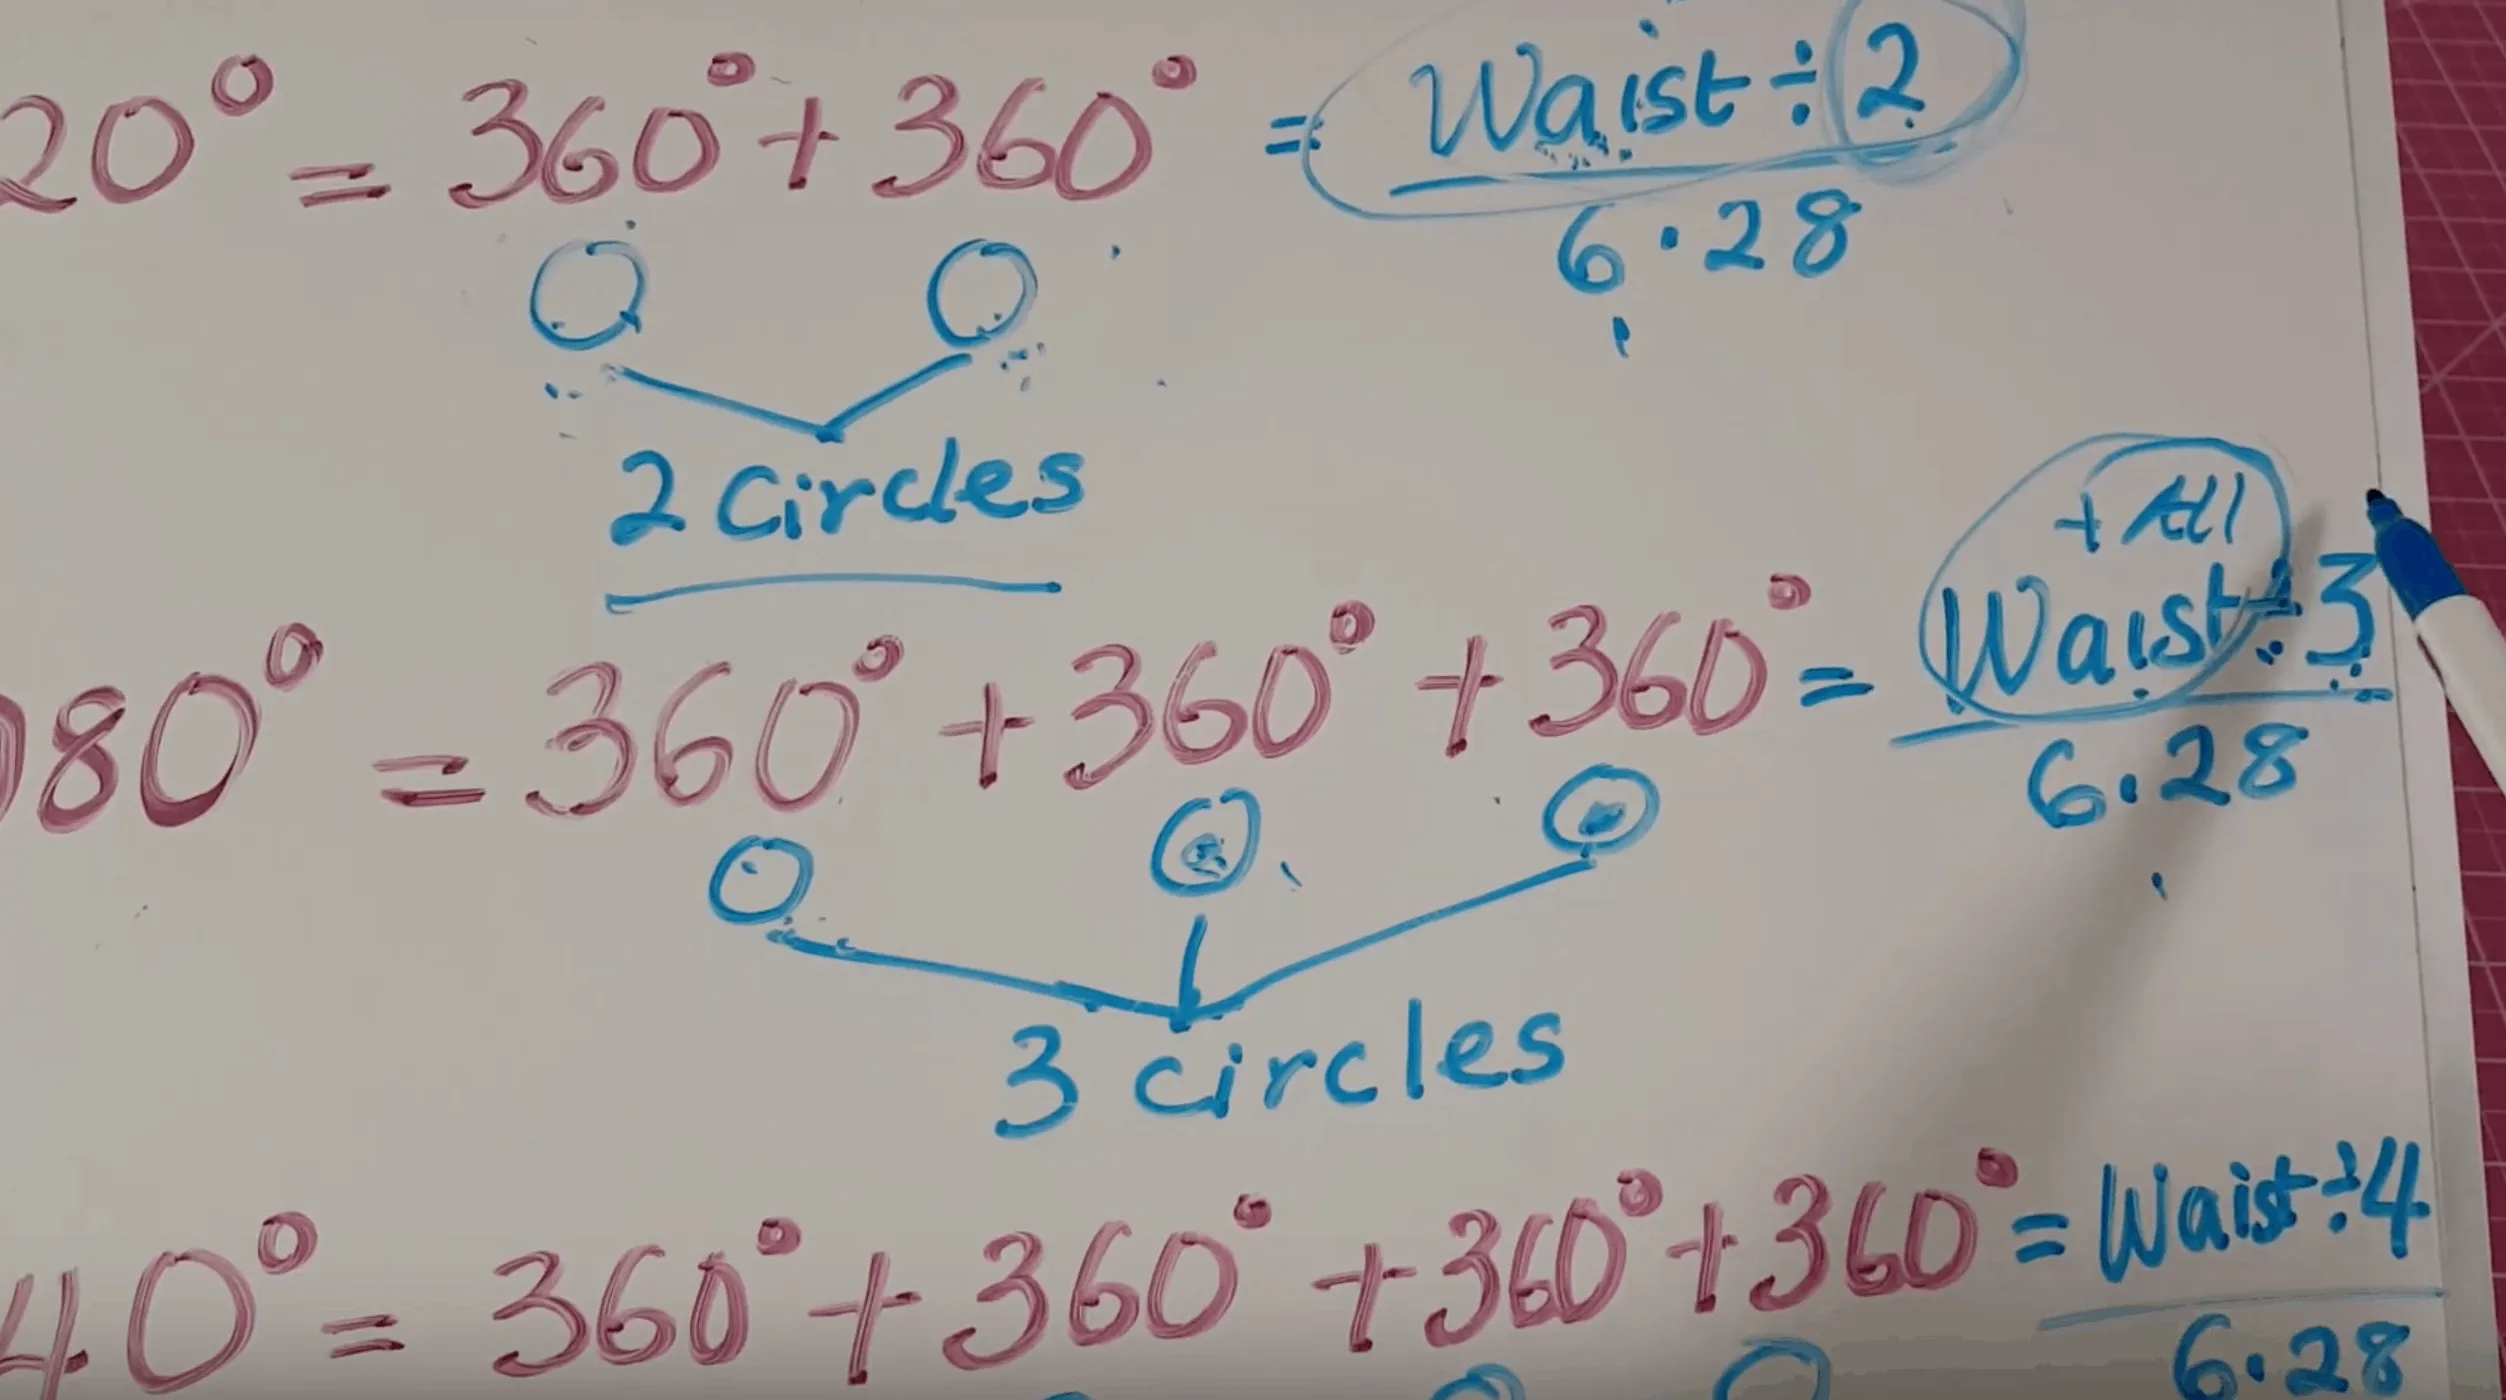 20° = 360° + 360° = Waist ÷ 2
6.28
2 Circles
+ All
080° = 360° + 360° + 360° = Waist ÷ 3
6.28
3 circles
40° = 360° + 360° + 360° + 360° = Waist ÷ 4
6.28